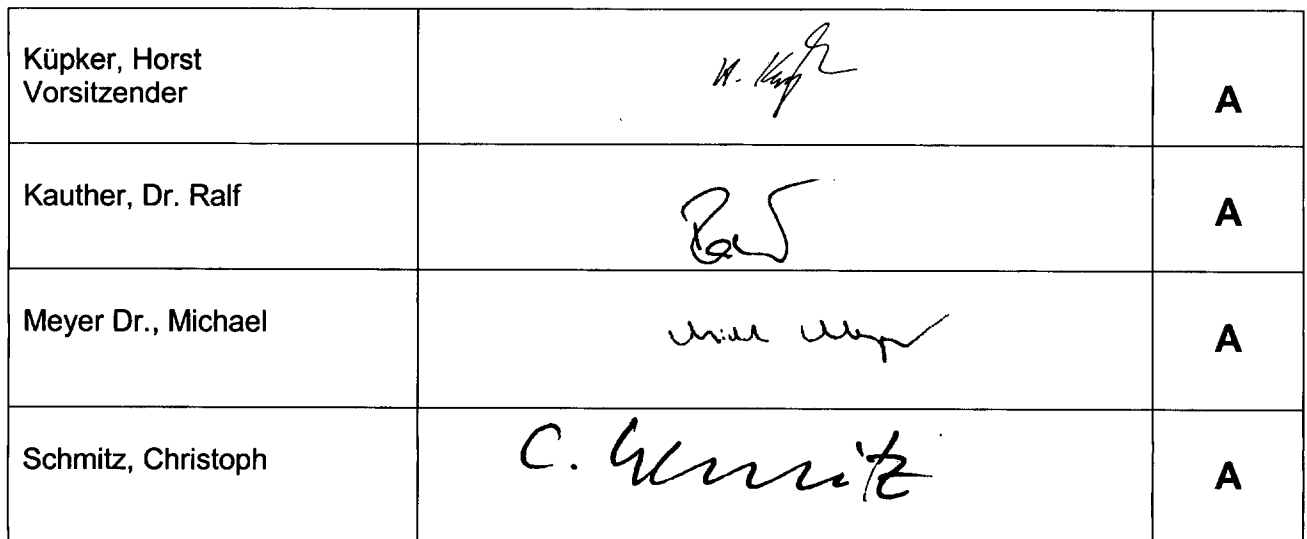 Küpker, Horst
Vorsitzender
H. Küpker
A
Kauther, Dr. Ralf
A
Meyer Dr., Michael
Michael Meyer
A
Schmitz, Christoph
C. Schmitz
A